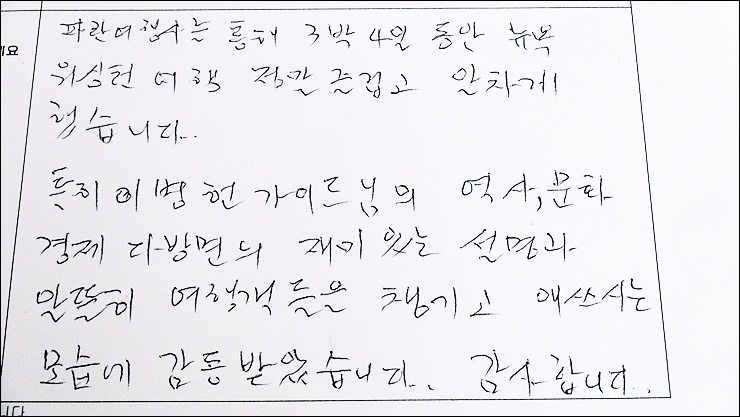 파란여행사를 통해 3박 4일 동안 뉴욕
워싱턴 여행 정말 즐겁고 알차게
했습니다.
특히 이병헌 가이드님의 역사, 문화
경제 다방면의 재미있는 설명과
알뜰히 여행객들을 챙기고 애쓰시는
모습에 감동받았습니다. 감사합니다.